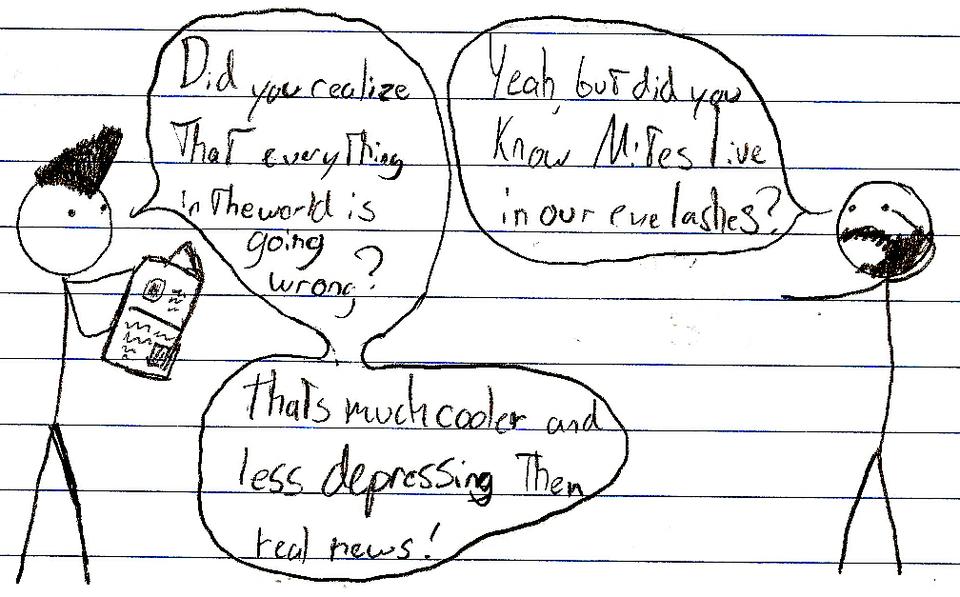 Did you realize
That everything
in the world is
going
wrong?
Yeah, but did you
Know Mites live
in our eyelashes?
thats much cooler and
less depressing Then
real news!